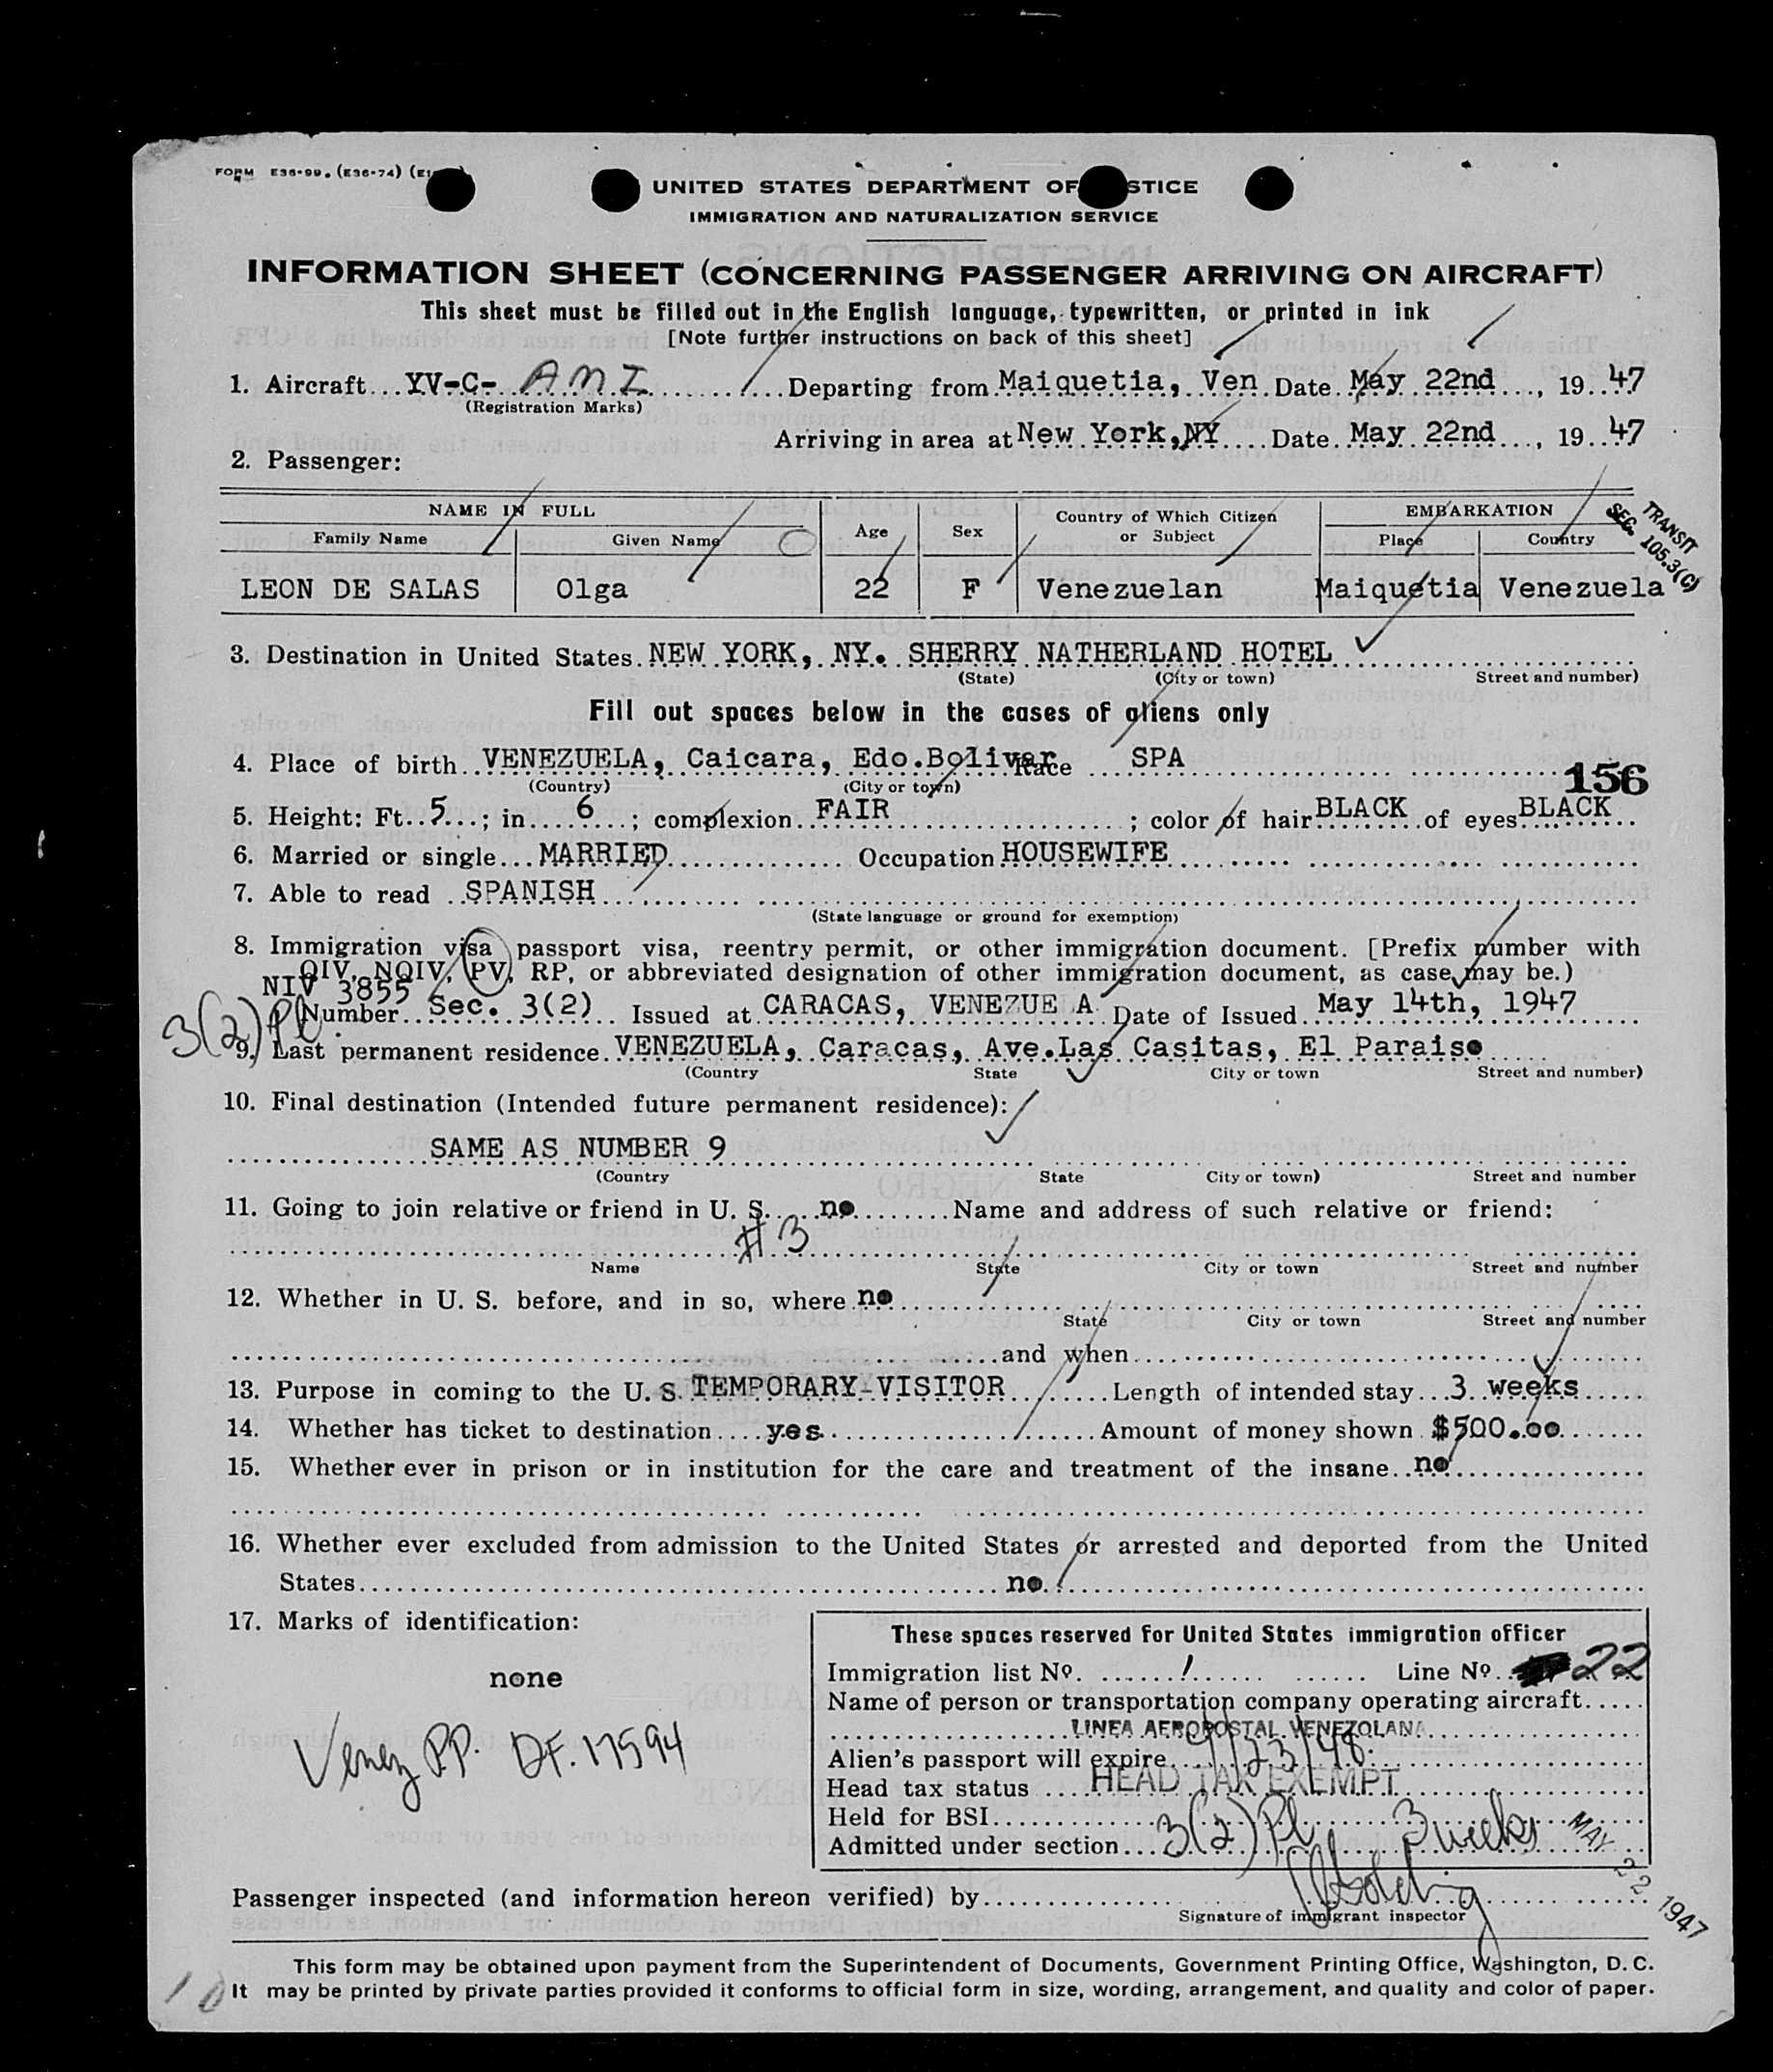 FORM E36-99. (E36-74)
UNITED STATES DEPARTMENT OF STICE
IMMIGRATION AND NATURALIZATION SERVICE
INFORMATION SHEET (CONCERNING PASSENGER ARRIVING ON AIRCRAFT)
This sheet must be filled out in the English language, typewritten, or printed in ink
[Note further instructions on back of this sheet]
1. Aircraft...YV-C- AMI Departing from Maiquetia, Ven Date May 22nd, 19 47
(Registration Marks)
Arriving in area at New York, NY Date May 22nd, 19 47
2. Passenger:
NAME IN FULL Age Sex Country of Which Citizen or Subject EMBARKATION
Family Name Given Name Place Country
TRANSIT
SEC. 105.3(C)
LEON DE SALAS Olga 22 F Venezuelan Maiquetia Venezuela
3. Destination in United States. NEW YORK, NY. SHERRY NATHERLAND HOTEL
(State) (City or town) Street and number)
Fill out spaces below in the cases of aliens only
4. Place of birth VENEZUELA, Caicara, Edo.Bolivar Race SPA
(Country) (City or town)
156
5. Height: Ft. 5 ; in. 6 ; complexion FAIR ; color of hair BLACK of eyes BLACK
6. Married or single MARRIED Occupation HOUSEWIFE
7. Able to read SPANISH
(State language or ground for exemption)
8. Immigration visa passport visa, reentry permit, or other immigration document. [Prefix number with
QIV, NQIV, PV, RP, or abbreviated designation of other immigration document, as case may be.)
NIV 3855
3(2)Pl Number Sec. 3(2) Issued at CARACAS, VENEZUE A Date of Issued May 14th, 1947
9. Last permanent residence VENEZUELA, Caracas, Ave.Las Casitas, El Paraiso
(Country State City or town Street and number)
10. Final destination (Intended future permanent residence):
SAME AS NUMBER 9
(Country State City or town) Street and number
11. Going to join relative or friend in U. S. no Name and address of such relative or friend:
#3
Name State City or town Street and number
12. Whether in U. S. before, and in so, where no
State City or town Street and number
and when
13. Purpose in coming to the U. S. TEMPORARY-VISITOR Length of intended stay 3 weeks
14. Whether has ticket to destination yes Amount of money shown $500.00
15. Whether ever in prison or in institution for the care and treatment of the insane no
16. Whether ever excluded from admission to the United States or arrested and deported from the United
States no
17. Marks of identification:
none
Venez PP. DF. 17594
These spaces reserved for United States immigration officer
Immigration list No. 1 Line No. 22
Name of person or transportation company operating aircraft
LINEA AEROPOSTAL VENEZOLANA
Alien's passport will expire 9/23/48.
Head tax status HEAD TAX EXEMPT
Held for BSI
Admitted under section 3(2) Pl 3 weeks
MAY 22 1947
Passenger inspected (and information hereon verified) by
Signature of immigrant inspector
This form may be obtained upon payment from the Superintendent of Documents, Government Printing Office, Washington, D. C.
It may be printed by private parties provided it conforms to official form in size, wording, arrangement, and quality and color of paper.